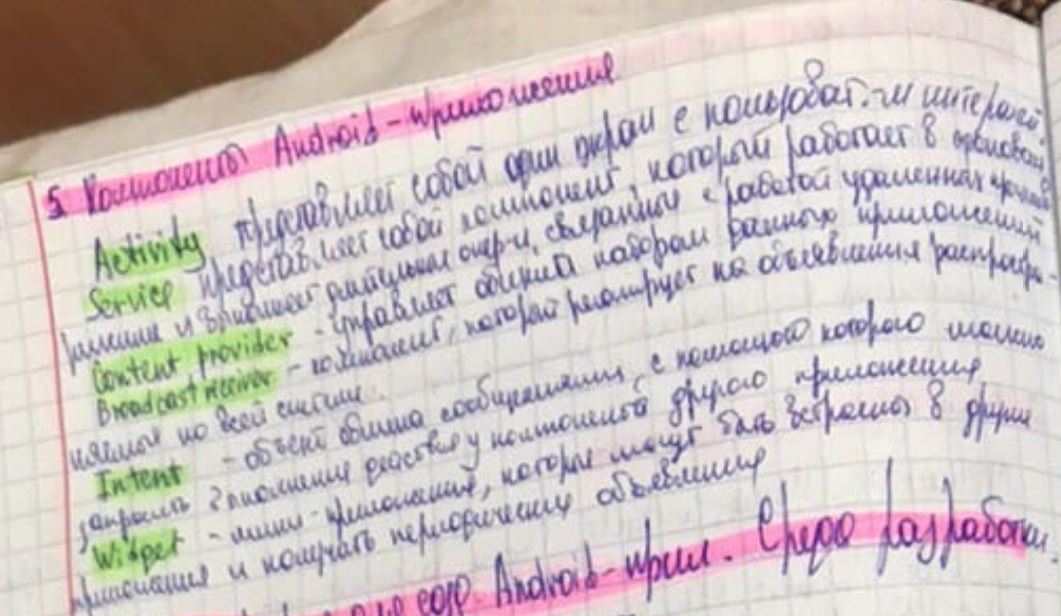 5. Компоненты Android-приложения
Activity представляет собой один экран с пользоват.-м интерфей
Service представляет собой компонент, который работает в фоновом
режиме и выполняет длительные опер-и, связанные с работой удаленных
Content provider - управляет общими набором данного приложений
Broadcast receiver - компонент, который реагирует на объявления распростра-
няемые по всей системе.
Intent - объект обмена сообщениями, с помощью которого можно
запросить выполнение действия у компонента другого приложения
Widget - мини-приложение, которые могут быть встроены в другие
приложения и получать периодические объявления
Android-прил. Среда разработки.